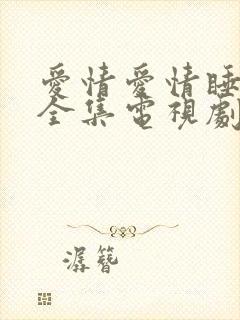 愛情愛情睡
全集電視劇
潺簪